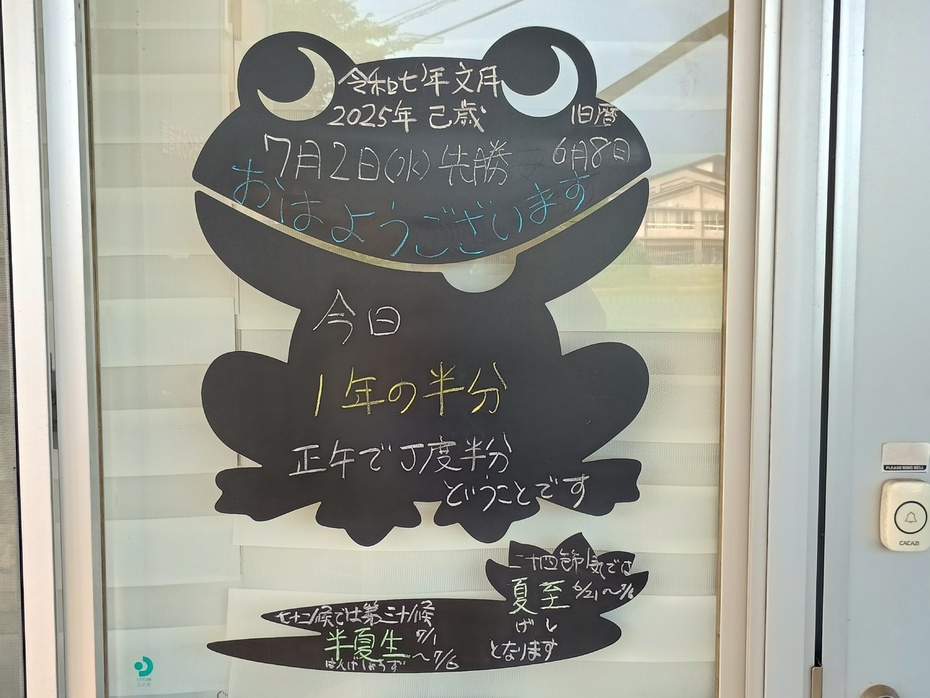 令和七年文月
2025年 己歳
旧暦
7月2日(水) 先勝
6月8日
おはようございます
今日
1年の半分
正午で丁度半分
ということです
二十四節気では
夏至 6/21～7/6
げし
となります
七十二候では第三十候
半夏生 7/1～7/6
はんげしょうず
PLEASE RING BELL
CACAZI